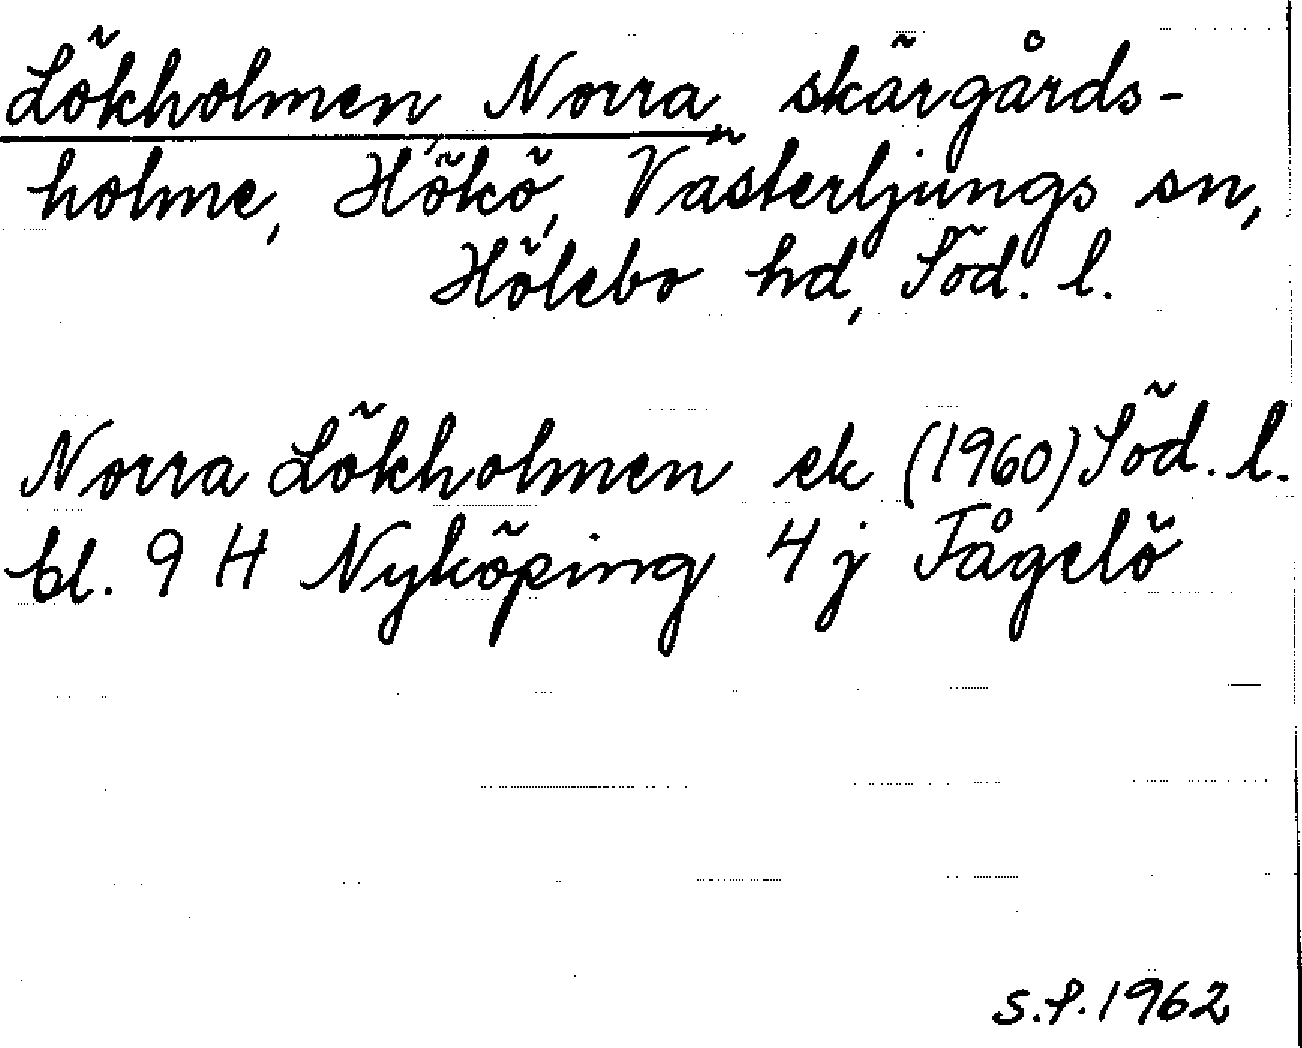 Lökholmen, Norra, skärgårds-
holme, Hökö, Västerljungs sn,
Hölebo hd, Söd. l.
Norra Lökholmen ek (1960) Söd. l.
bl. 9 H Nyköping 4 j Fågelö
S.P. 1962